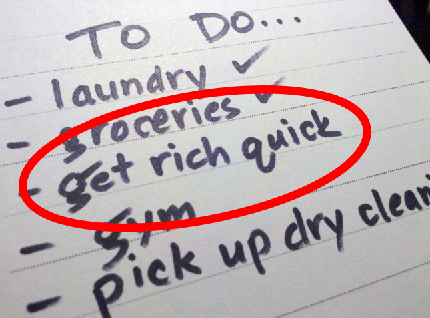 TO DO...
- laundry ✓
- groceries ✓
- get rich quick
- gym
- pick up dry